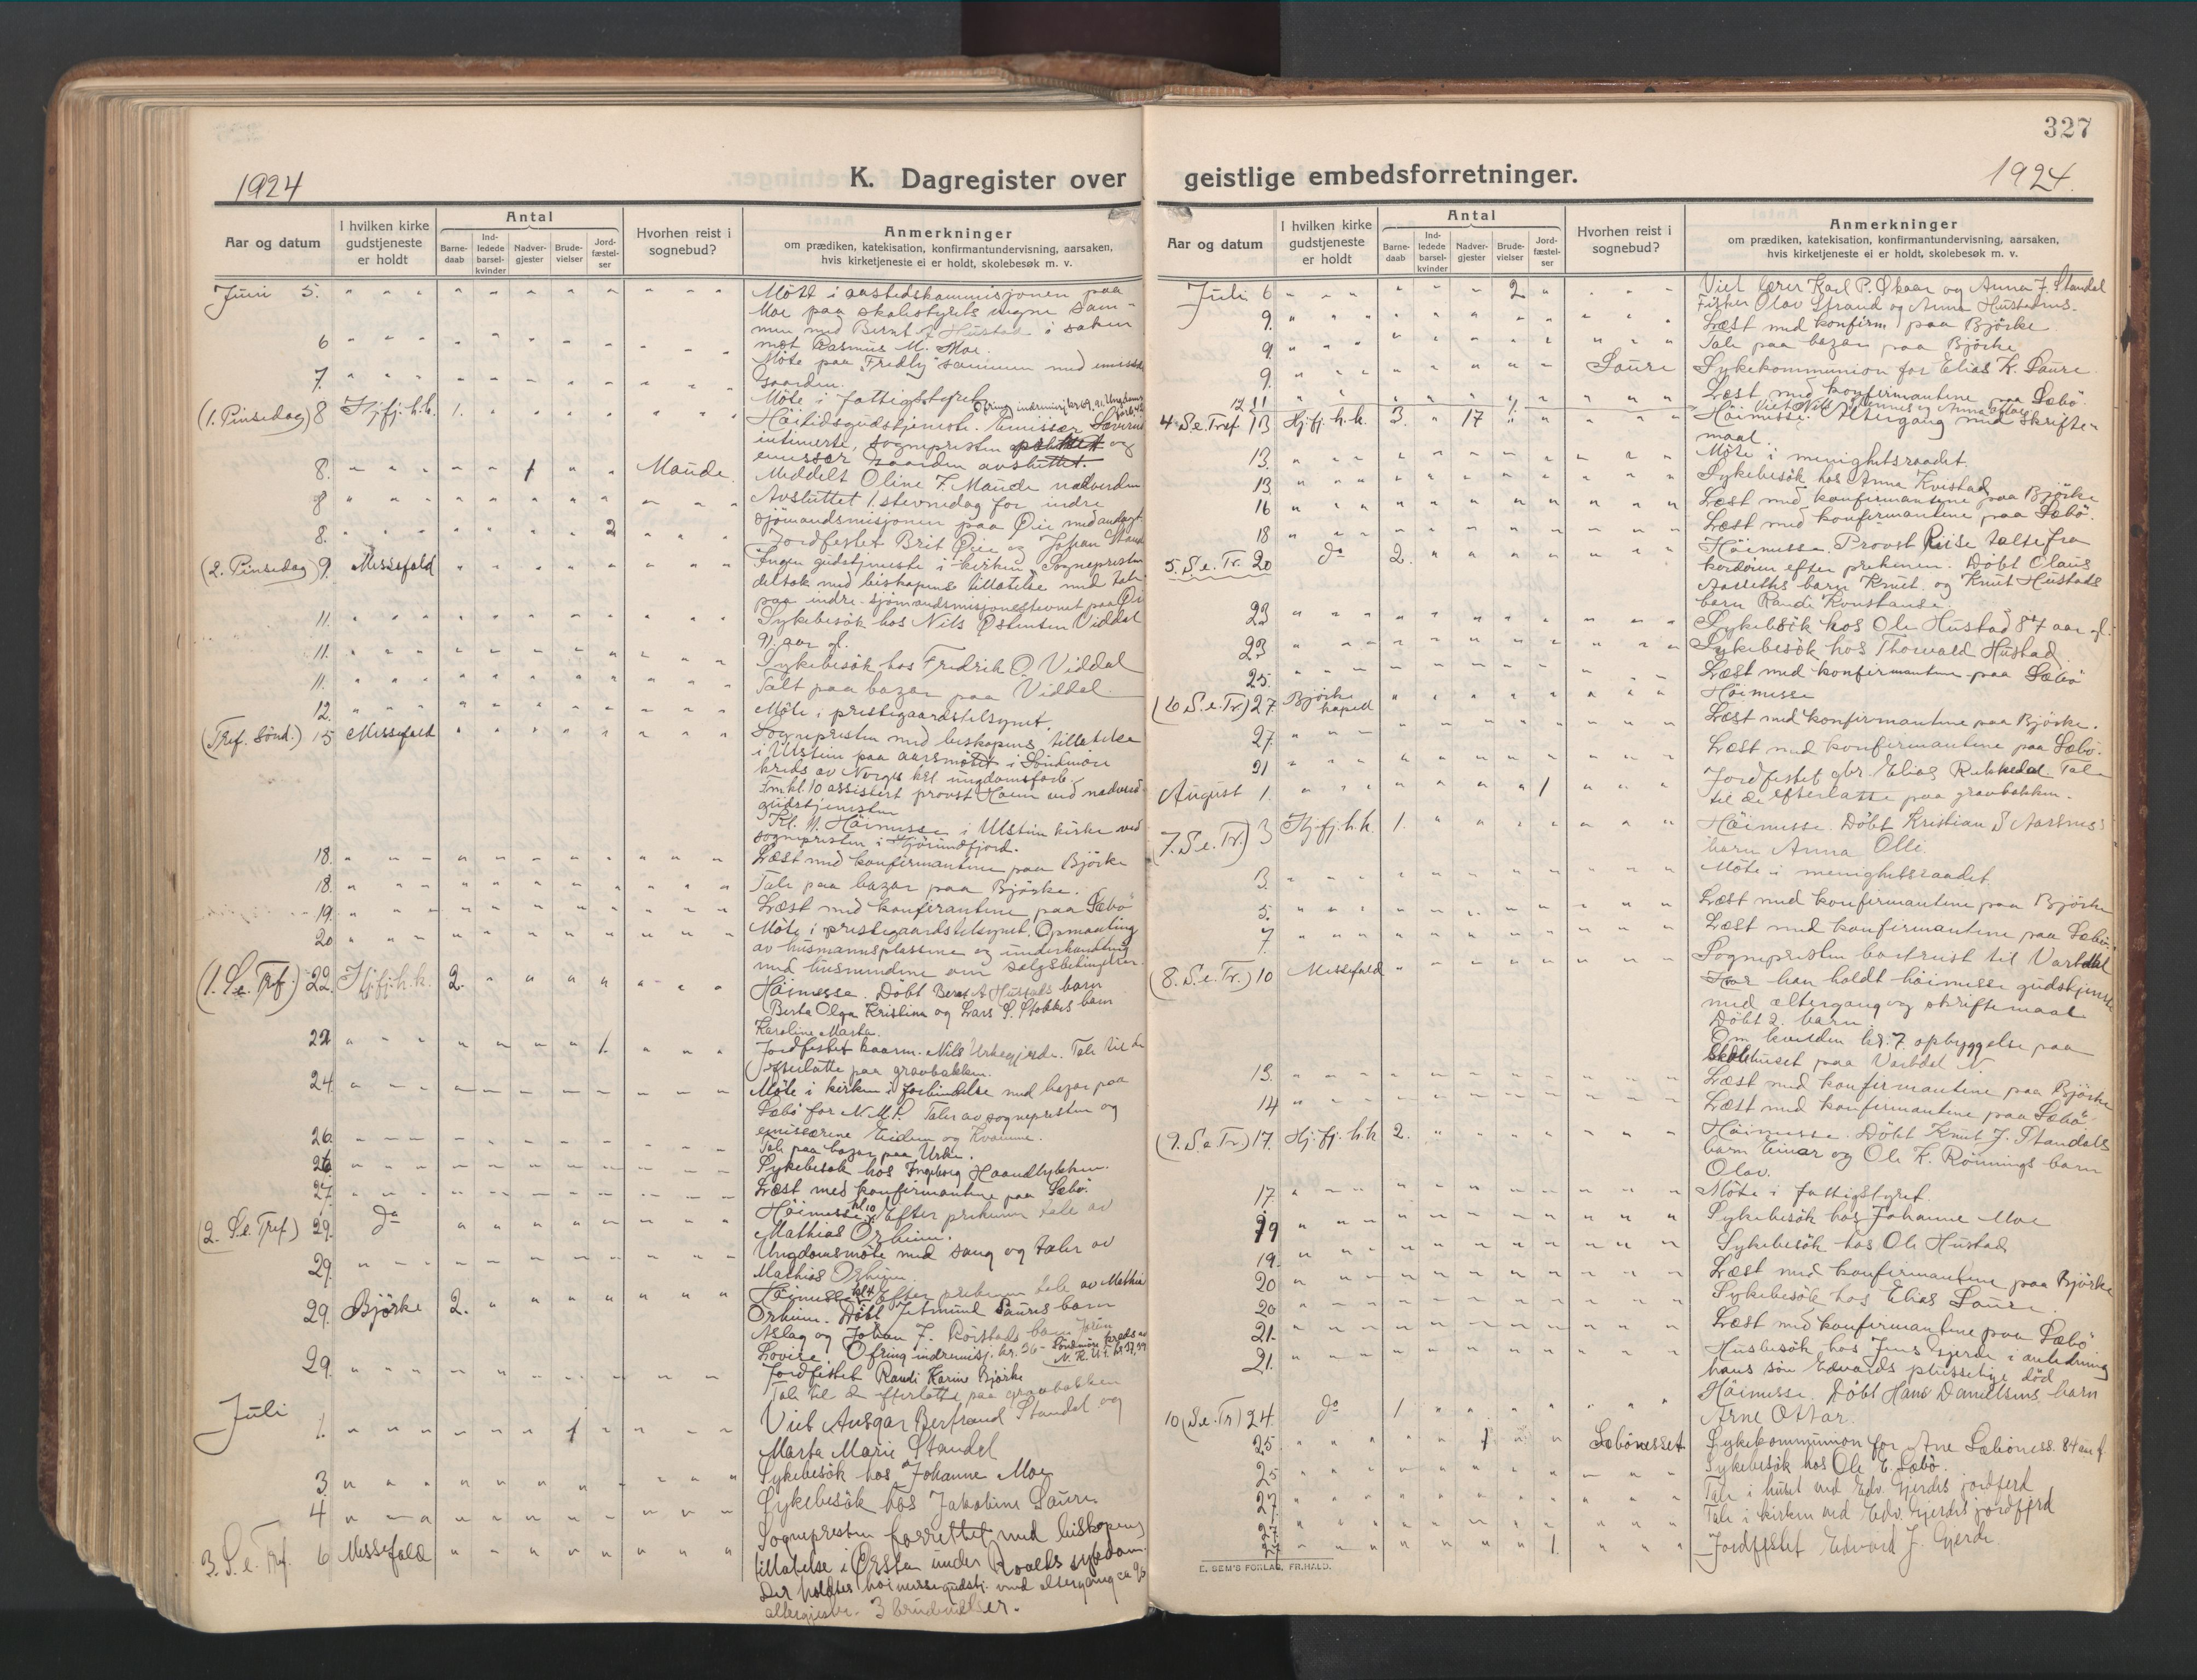 327
1924
K. Dagregister over geistlige embedsforretninger.
1924.
Aar og datum
I hvilken kirke gudstjeneste er holdt
Antal
Barne-daab
Ind-ledede barsel-kvinder
Nadver-gjester
Brude-vielser
Jord-fæstel-ser
Hvorhen reist i sognebud?
Anmerkninger
om prædiken, katekisation, konfirmantundervisning, aarsaken,
hvis kirketjeneste ei er holdt, skolebesøk m. v.
Juni 5. Mött i aastedskommisjonen paa
Moe paa skolestyrets vegne sam-
men med Bernt A Hustad i saken
mot Rasmus M. Moe.
6 Möte paa "Fredly" sammen med emissær
Gaarden.
7. Möte i fattigstyret.
(1. Pinsedag) 8 Hj.fj.h.k. 1. Höitidsgudstjeneste. Emissær
intimerte, sognepresten og
emissær Gaarden avsluttet.
8. 1 Maude. Meddelt Oline F. Maude nadverden
8 Avsluttet 1. stevnedag for indre
sjömandsmisjonen paa Öie med andagt
8. 2 Jordfestet Brit Öie og Johan
(2. Pinsedag) 9. Messefald Ingen gudstjeneste i kirken. Sognepresten
deltok med biskopens tillatelse med tale
paa indre sjömandsmisjonsstevnet paa Öie
11. Sykebesök hos Nils Östensen Viddal
91 aar gl.
11. Sykebesök hos Fredrik O. Viddal
11. Talt paa bazar paa Viddal.
12. Möte i prestegaardstilsynet.
(Tref. Sönd.) 15 Messefald Sognepresten med biskopens tillatelse
i Ulstein paa aarsmötet i Söndmöre
kreds av Norges krl. ungdomsforb.
Fm. kl. 10 assistert provst Hoem ved nadverd-
gudstjenesten
Kl. 11. Höimesse i Ulstein kirke ved
sognepresten i Hjörundfjord.
18. Læst med konfirmantene paa Björke
18. Tale paa bazar paa Björke.
19. Læst med konfirantene paa Sæbö
20 Möte i prestegaardstilsynet. Opmaaling
av husmannsplassene og underhandling
med husmendene om salgsbetingelser.
(1. S.e. Tref.) 22. Hj.fj.h.k. 2. Höimesse. Döbt Bernt A Hustads barn
Berta Olga Kristine og Lars S. Stokkes barn
Karoline Marta.
22 1. Jordfestet kaarm. Nils Urkegjerde. Tale til de
efterlatte paa gravbakken.
24. Möte i kirken i forbindelse med bazar paa
Sæbö for N.M.S. Taler av sognepresten og
emissærene Eidem og Kvamme.
26. Tale paa bazar paa Urke.
26. Sykebesök hos Ingeborg Haandlykken.
27. Læst med konfirmantene paa Sæbö.
(2. S.e. Tref.) 29. do Höimesse kl 10. Efter prekenen tale av
Mathias Orheim.
29. Ungdomsmöte med sang og taler av
Mathias Orheim.
29. Björke 2. Höimesse kl 4. Efter prekenen tale av Mathias
Orheim. Döbt Jetmund Saures barn
Aslag og Johan J. Rörstads barn
Lovise. Ofring indremisj. kr. 36- Söndmöre kreds av
N. K. U.
29. Jordfestet Randi Karine Björke
Tale til de efterlatte paa gravbakken
Juli 1. 1 Viet Ansgar Berfrand Standal og
Marta Marie Standal
3 Sykebesök hos Johanne Moe
4 Sykebesök hos Jakobine Saure.
3. S.e. Tref. 6 Messefald Sognepresten forrettet med biskopens
tillatelse i Örsta under Roalds sykdom.
Der holdtes höimessegudstj. med altergang ca 90
altergjester. 3 brudevielser.
Aar og datum
I hvilken kirke gudstjeneste er holdt
Antal
Barne-daab
Ind-ledede barsel-kvinder
Nadver-gjester
Brude-vielser
Jord-fæstel-ser
Hvorhen reist i sognebud?
Anmerkninger
om prædiken, katekisation, konfirmantundervisning, aarsaken,
hvis kirketjeneste ei er holdt, skolebesøk m. v.
Juli 6 2 Viet lærer Karl P. Økaar og Anna J. Standal
Fisker Olav Strand og Anna Hustadnes.
9. Læst med konfirm. paa Björke.
9. Tale paa bazar paa Björke
9. Saure Sykekommunion for Elias K. Saure.
11 Læst med konfirmantene paa Sæbö.
4. S.e. Tref. 13 Hj.fj.h.k. 3. 17 Höimesse. Altergang med skrifte-
maal.
13. Möte i menighetsraadet.
13. Sykebesök hos Anne Kvistad
16 Læst med konfirmantene paa Björke
18 Læst med konfirmantene paa Sæbö.
5. S.e. Tr. 20 do 2. Höimesse. Provst Riise talte fra
kordören efter prekenen. Döbt Claus
Aarseths barn Knut og Knut Hustads
barn Randi Konstanse.
23 Sykebsök hos Ole Hustad 87 aar gl.
23 Sykebesök hos Thorvald Hustad
25. Læst med konfirmantene paa Sæbö
(6 S.e. Tr.) 27. Björke kapell Höimesse
27. Læst med konfirmantene paa Björke.
31 Læst med konfirmantene paa Sæbö.
August 1. 1 Jordfestet gbr. Elias Rekkedal. Tale
til de efterlatte paa gravbakken.
7. S.e. Tr.) 3 Hj.fj.h.k. 1. Höimesse. Döbt Kristian S Aarsnes's
barn Anna Olli.
3. Möte i menighetsraadet.
5. Læst med konfirmantene paa Björke
7 Læst med konfirmantene paa Sæbö.
(8. S.e. Tr.) 10 Messefald Sognepresten bortreist til Vartdal
hvor han holdt höimesse gudstjeneste
med altergang og skriftemaal
Döbt 2. barn
Om kvelden kl. 7. opbyggelse paa
skolehuset paa Vartdal N.
13. Læst med konfirmantene paa Björke
14 Læst med konfirmantene paa Sæbö
(9. S.e. Tr.) 17. Hj.fj.h.k 2. Höimesse. Döbt Knut J. Standals
barn Einar og Ole K. Rönnings barn
Olav.
17. Möte i fattigstyret.
19 Sykebesök hos Johanne Moe
19. Sykebesök hos Ole Hustad
20 Læst med konfirmantene paa Björke
20 Sykebesök hos Elias Saure.
21. Læst med konfirmantene paa Sæbö
21. Husbesök hos Jens Gjerde i anledning
hans sön Edvards plusselige död
10 (S.e. Tr) 24. do 1 Höimesse. Döbt Hans Danielsens barn
Arne Ottar.
25 1 Sæbönesset Sykekommunion for Ane Sæböness. 84 aar gl.
25 Sykebesök hos Ole E. Sæbö.
27. Tale i huset ved Edv. Gjerdes jordferd
27. Tale i kirken ved Edv. Gjerdes jordferd
27 1. Jordfestet Edvard J. Gjerde
E. SEM'S FORLAG, FR.HALD.